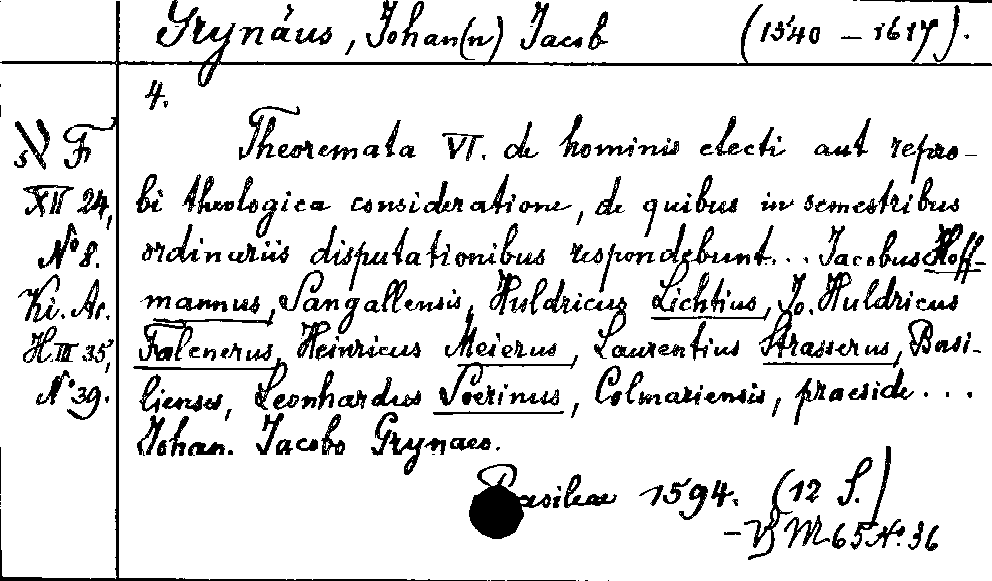 Grynäus, Johan(n) Jacob (1540 – 1617).
4.
Theoremata VI. de hominis electi aut repro-
bi theologica consideratione, de quibus in semestribus
ordinariis disputationibus respondebunt... Jacobus Hoff-
mannus, Sangallensis, Huldricus Lichtius, Jo. Huldricus
Falcnerus, Heinricus Meierus, Laurentius Strasserus, Basi-
lienses, Leonhardus Serinus, Colmariensis, praeside ...
Johan. Jacobo Grynaeo.
Basileae 1594. (12 S.)
– M 65 No. 36
F
XII 24,
No 8.
Ki. Ar.
H. III 35,
No 39.